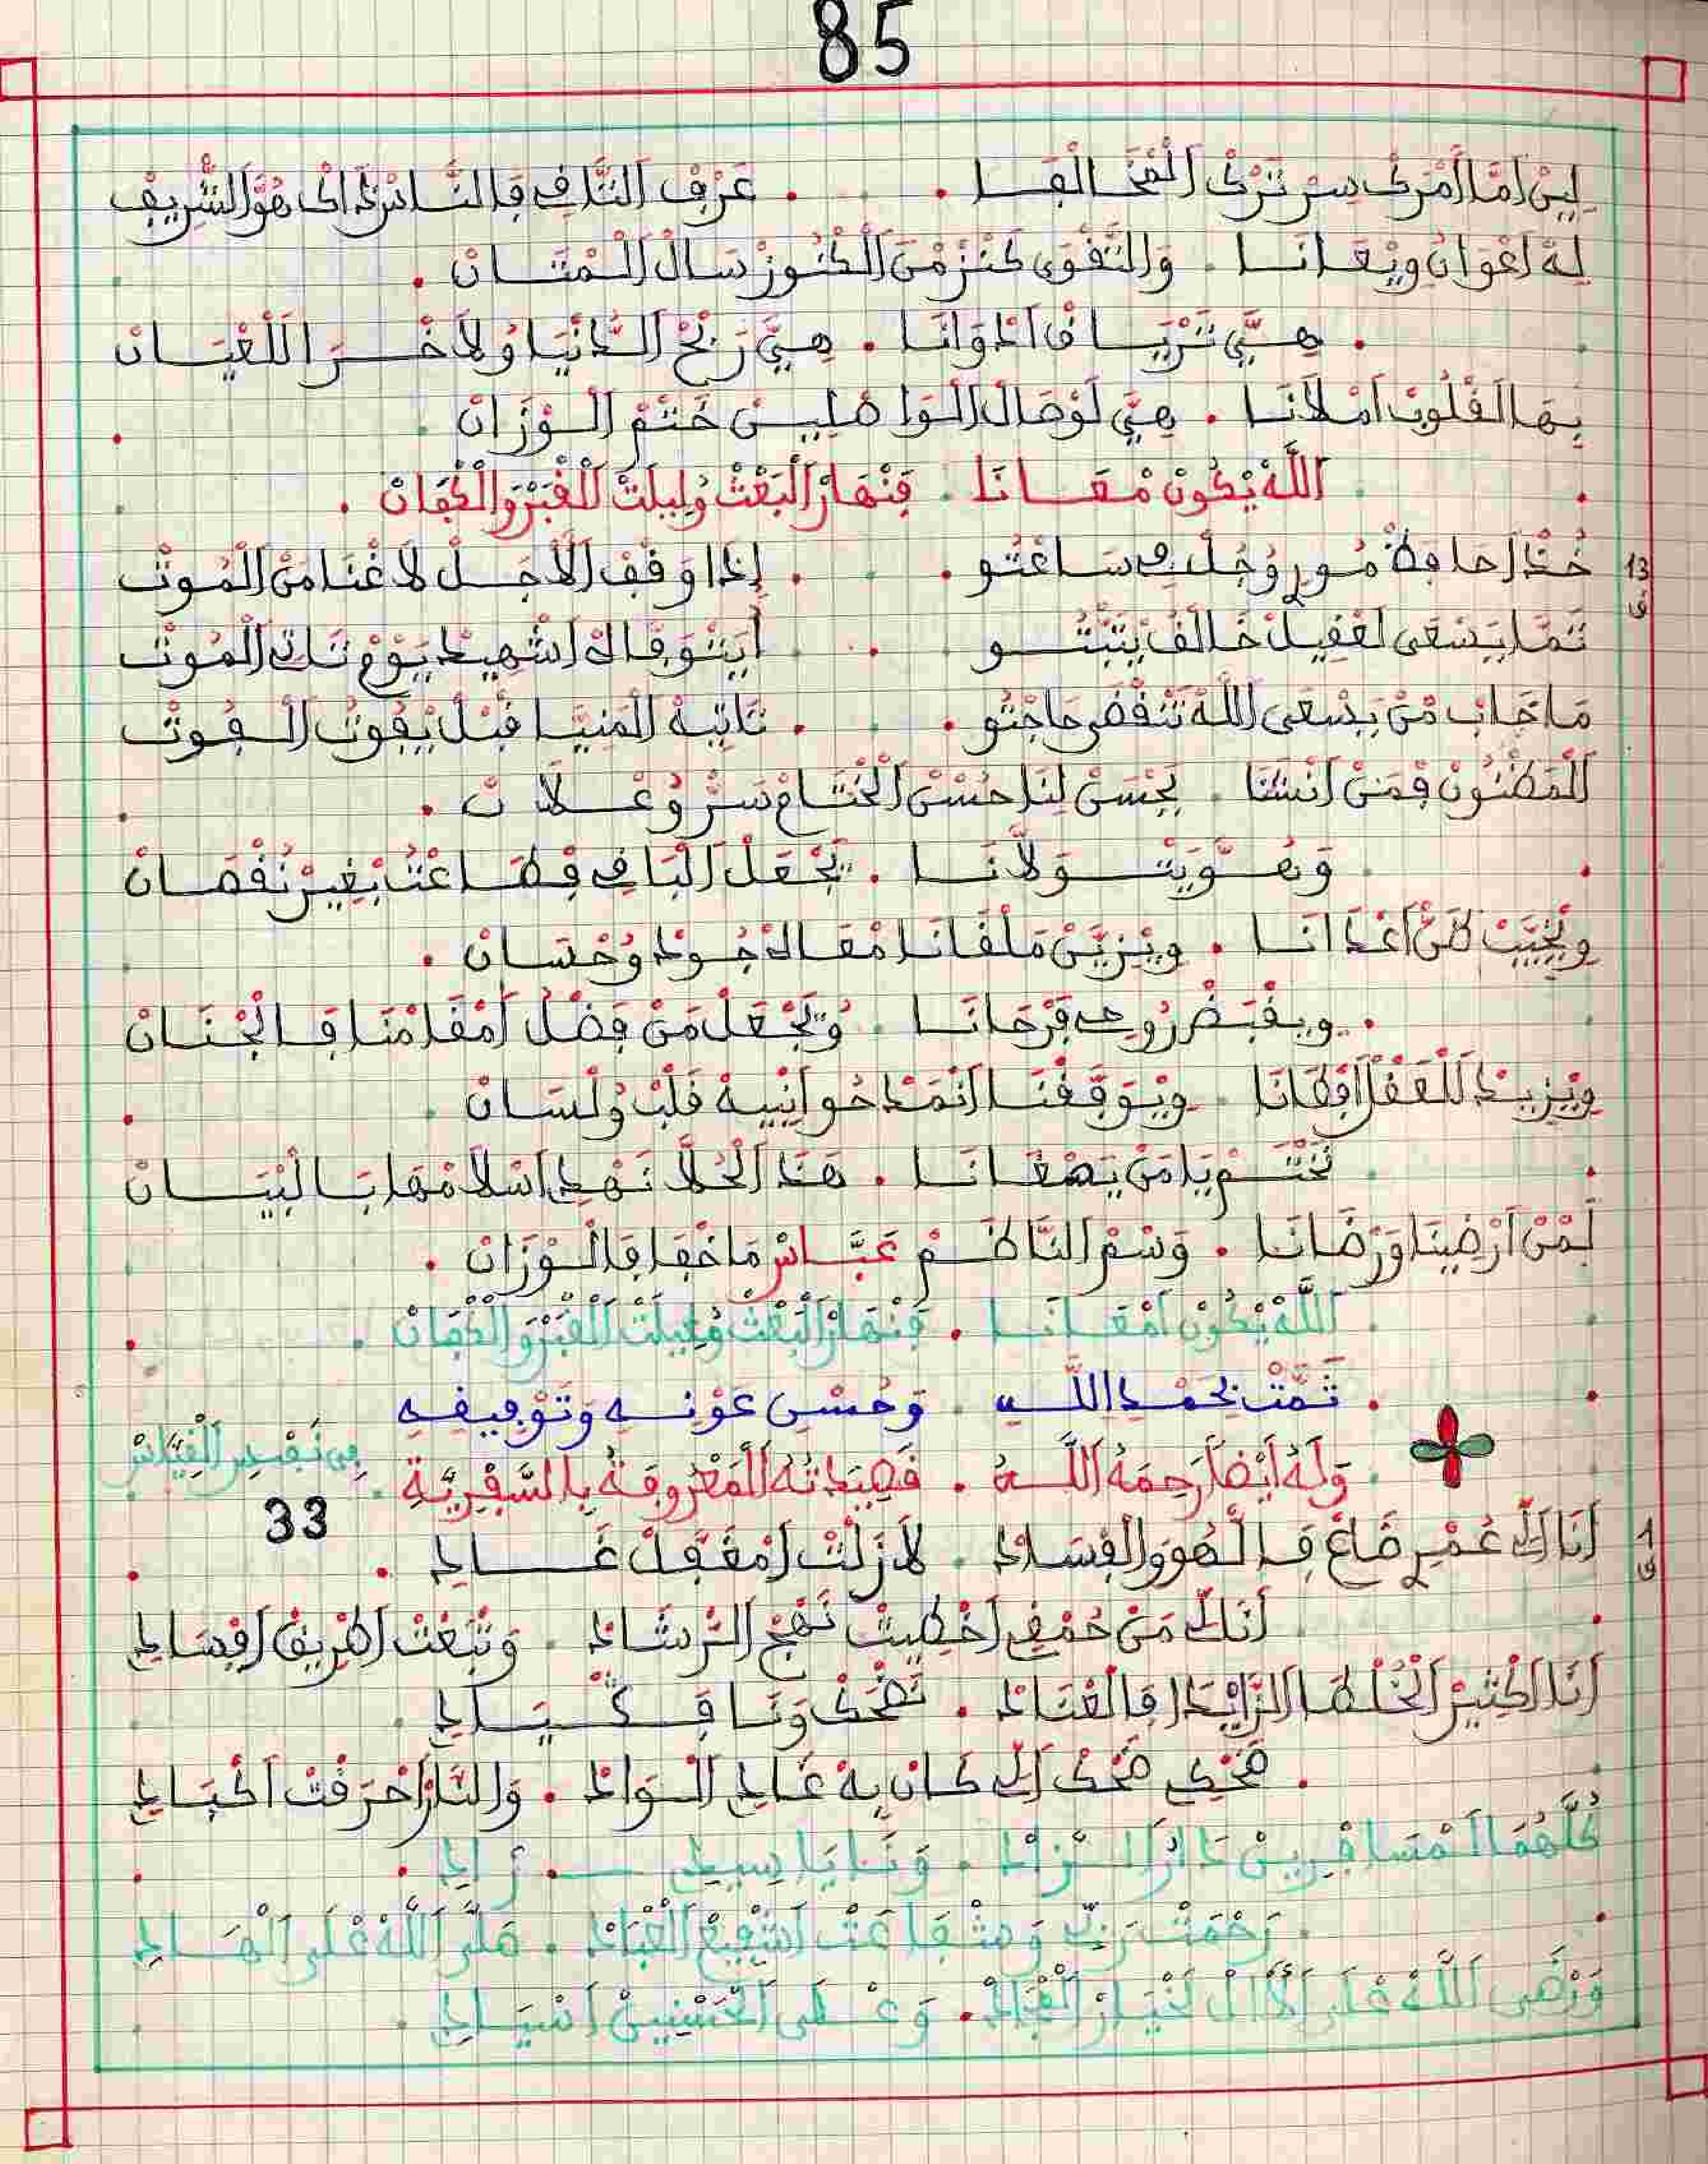 85
لِيسْ اَمَّا اَمْرَكْ سِرْ تَرْكْ اَلْمْخَالْفَا . عَرْفْ اَلتَّافِي فَالنَّاسْ ذَاكْ هُوَّ اَلشّْرِيفْ
لِهْ اَعْوَانْ وِيْعَانَا . وَالتَّقْوَى كَنْزْ مْنَ اَلْكْنُوزْ سَالْ اَلْمْتَانْ .
. هِيَّ تَرْيَا فْ اَدْوَانَا . هِيَّ رَبْحْ اَلدَّنْيَا وُلاَخْرَا اَلْلعْيَانْ
بِهَا اَلقْلُوبْ اَمْلاَنَا . هِيَّ لَوْصَالْ اَلْوَاصْلِينْ خَتْمْ اَلْوْزَانْ
اَللَّهْ يْكُونْ مْعَانَا . فَنْهَارْ اَلْبَعْثْ وُلِيلَتْ اَلْقْبَرْ وَالْكْفَانْ .
13 خُذْ اَحَافِظْ مُورِي وُجُلْ فِي سَاعْتُو . إِذَا وَقْفْ اَلاَجَلْ لاَ غْنَا مَنْ اَلْمُوتْ
ق تَمَّا يَسْعَى لَعْقِيلْ خَالَفْ يَتْبْتُو . أَيْتْوَفَّاكْ اَشْهِيدْ يَوْمْ تَاكْ اَلْمُوتْ
مَا خَابْ مْنْ يَسْعَى اَللَّهْ تَنْقْضَى حَاجْتُو . تَاتِيهْ اَلْمَنِيَّا قْبَلْ يْفُوتْ اَلْفُوتْ
اَلْمَظْنُونْ فِمَنْ اَنْشَنَا . يَحْسَنْ لِنَا حُسْنْ اَلْخْتَامْ سَرّْ وُعْلاَنْ .
وَهُوَّ يَتْوَلاَّنَا . يَجْعَلْ اَلْبَاقِي فِطَاعْتُ بْغِيرْ نُقْصَانْ
وِيْخَيَّبْ ظَنّْ اَعْدَانَا . وِيْزَيَّنْ مَلْقَانَا مْعَاهْ جُودْ وُحْسَانْ .
. وِيقْبَضْ رُوحِي فَرْحَانَا . وُيَجْعَلْ مَنْ فَضْلُ اَمْقَامْنَا فَالجْنَانْ
وِيْزِيدْ لَلْعَقْلْ اَفْطَانَا . وِيْوَفَّقْنَا اَنْمَدْحُوا اَنْبِيهْ قَلْبْ وُلْسَانْ .
نَخْتَمْ يَا مَنْ يَصْغَانَا . هَذَ اَلْحُلاَّ نَهْدِي اَسْلاَمْهَا بَالبْيَانْ
لَمْنْ اَرْضِينَا وَرْضَانَا . وَسْمْ اَلنَّاظَمْ عَبَّاسْ مَا خْفَا فَالْوْزَانْ .
اَللَّهْ يْكُونْ اَمْعَانَا . فَنْهَارْ اَلْبَعْثْ وُلِيلَتْ اَلْقْبَرْ وَالْكْفَانْ .
. تَمَّتْ بِحَمْدِ اللَّهِ . وَحُسْنِ عَوْنِهِ وَتَوْفِيقِهِ
وَلَهُ أَيْضًا رَحِمَهُ اللَّهُ . قَصِيدَتُهُ اَلْمَعْرُوفَةُ بِالسَّفَرِيَّةِ .
33
1 أَنَا لِّي عُمْرِي ضَاعْ فَالْهُو وَالْفْسَادْ . لاَ زَلْتْ اَمْغَفَّلْ غَادِي .
ق أَنَا لِّي مَنْ حُمْقِي اَخْطِيتْ نَهْجْ اَلرّْشَادْ . وَتْبَعْتْ اَطْرِيقْ اَفْسَادِي
أَنَا اَكْثِيرْ اَلْخْطَا اَلزَّايْدَا فَالْعْنَادْ . نَضْحَكْ وَنَا فَكْيَادِي
. ضَحْكِي ضَحْكْ اَلِّي كَانْ بِهْ غَادِي اَلْوَادْ . وَالنَّارْ اَحْرَقْتْ اَكْبَادِي
كُلّْهُمَا اَمْسَافْرِينْ دَارْ اَلزَّادْ . وَنَا يَا سِيدِي . زَادِي .
. رَحْمَتْ رَبِّي وَشْفَاعْتْ اَشْفِيعْ اَلْعْبَادْ . صَلَّى اَللَّهْ عْلَى اَلْهَادِي
وَرْضَى اَللَّهْ عْلَى اَلاَلْ لَخْيَارْ اَلْمْجَادْ . وَعْلَى اَلْحَسْنِينْ اَسْيَادِي